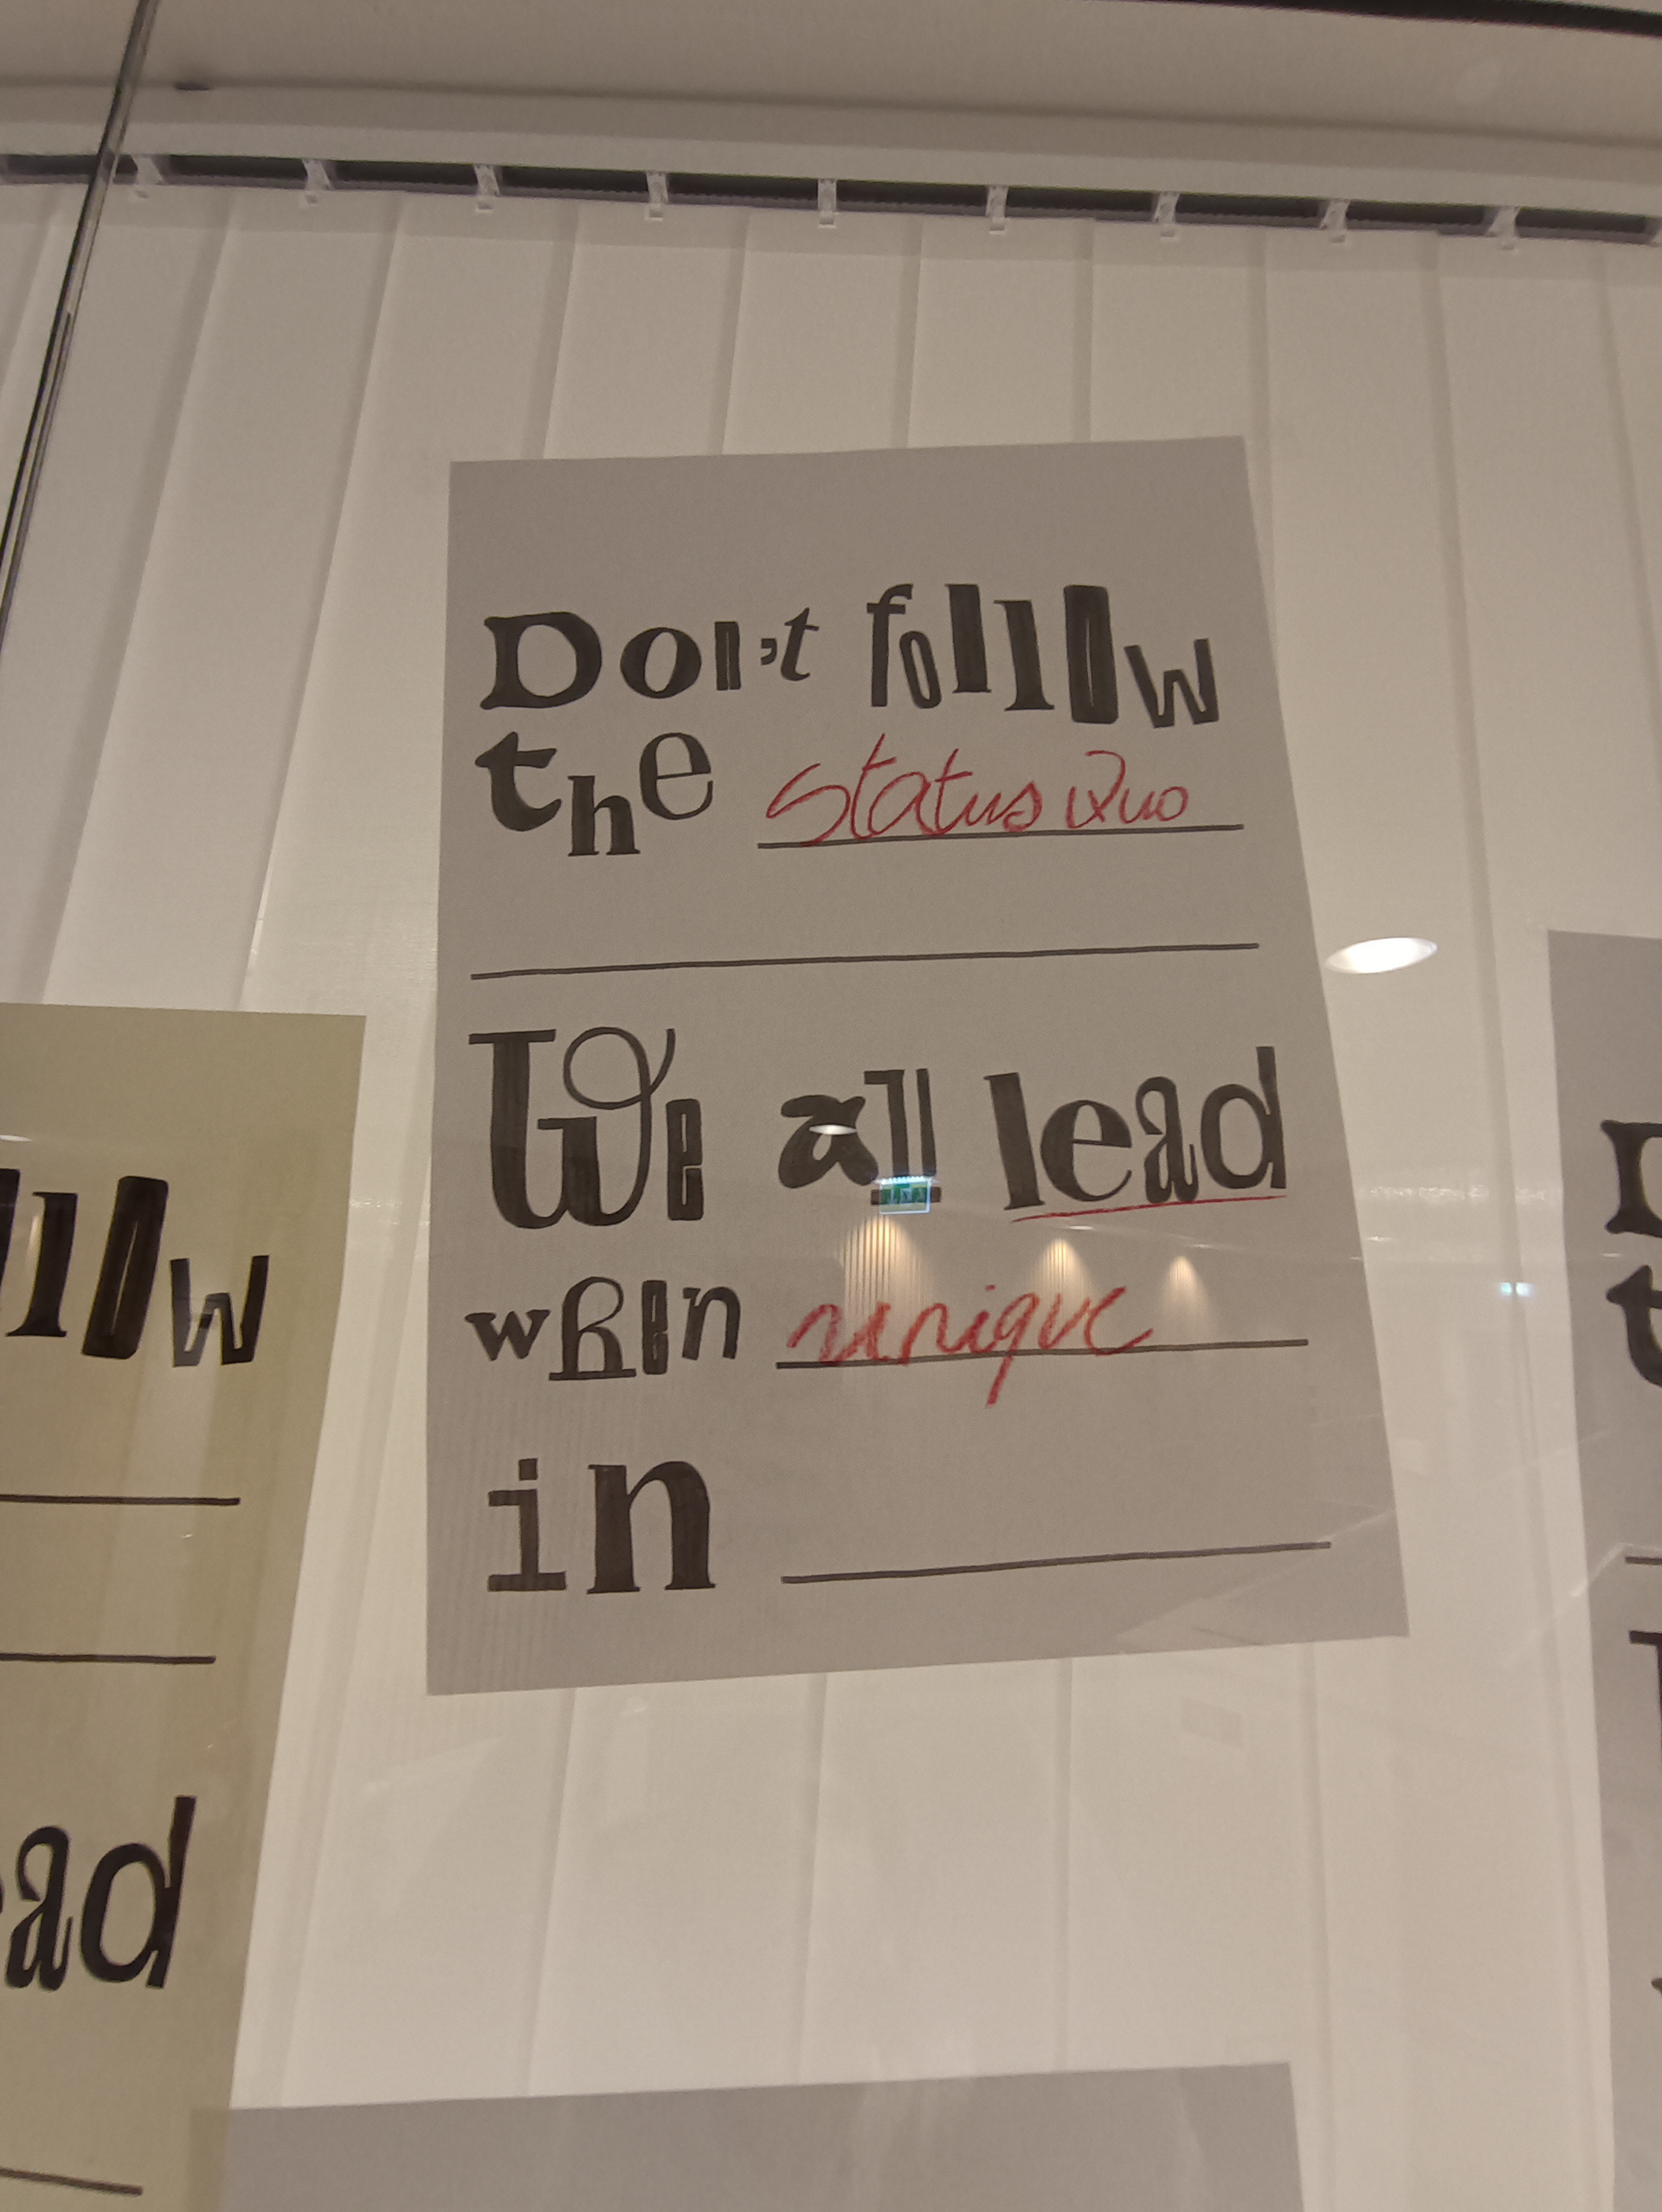 Don't follow
the Status Quo
We all lead
when unique
in
llow
ead